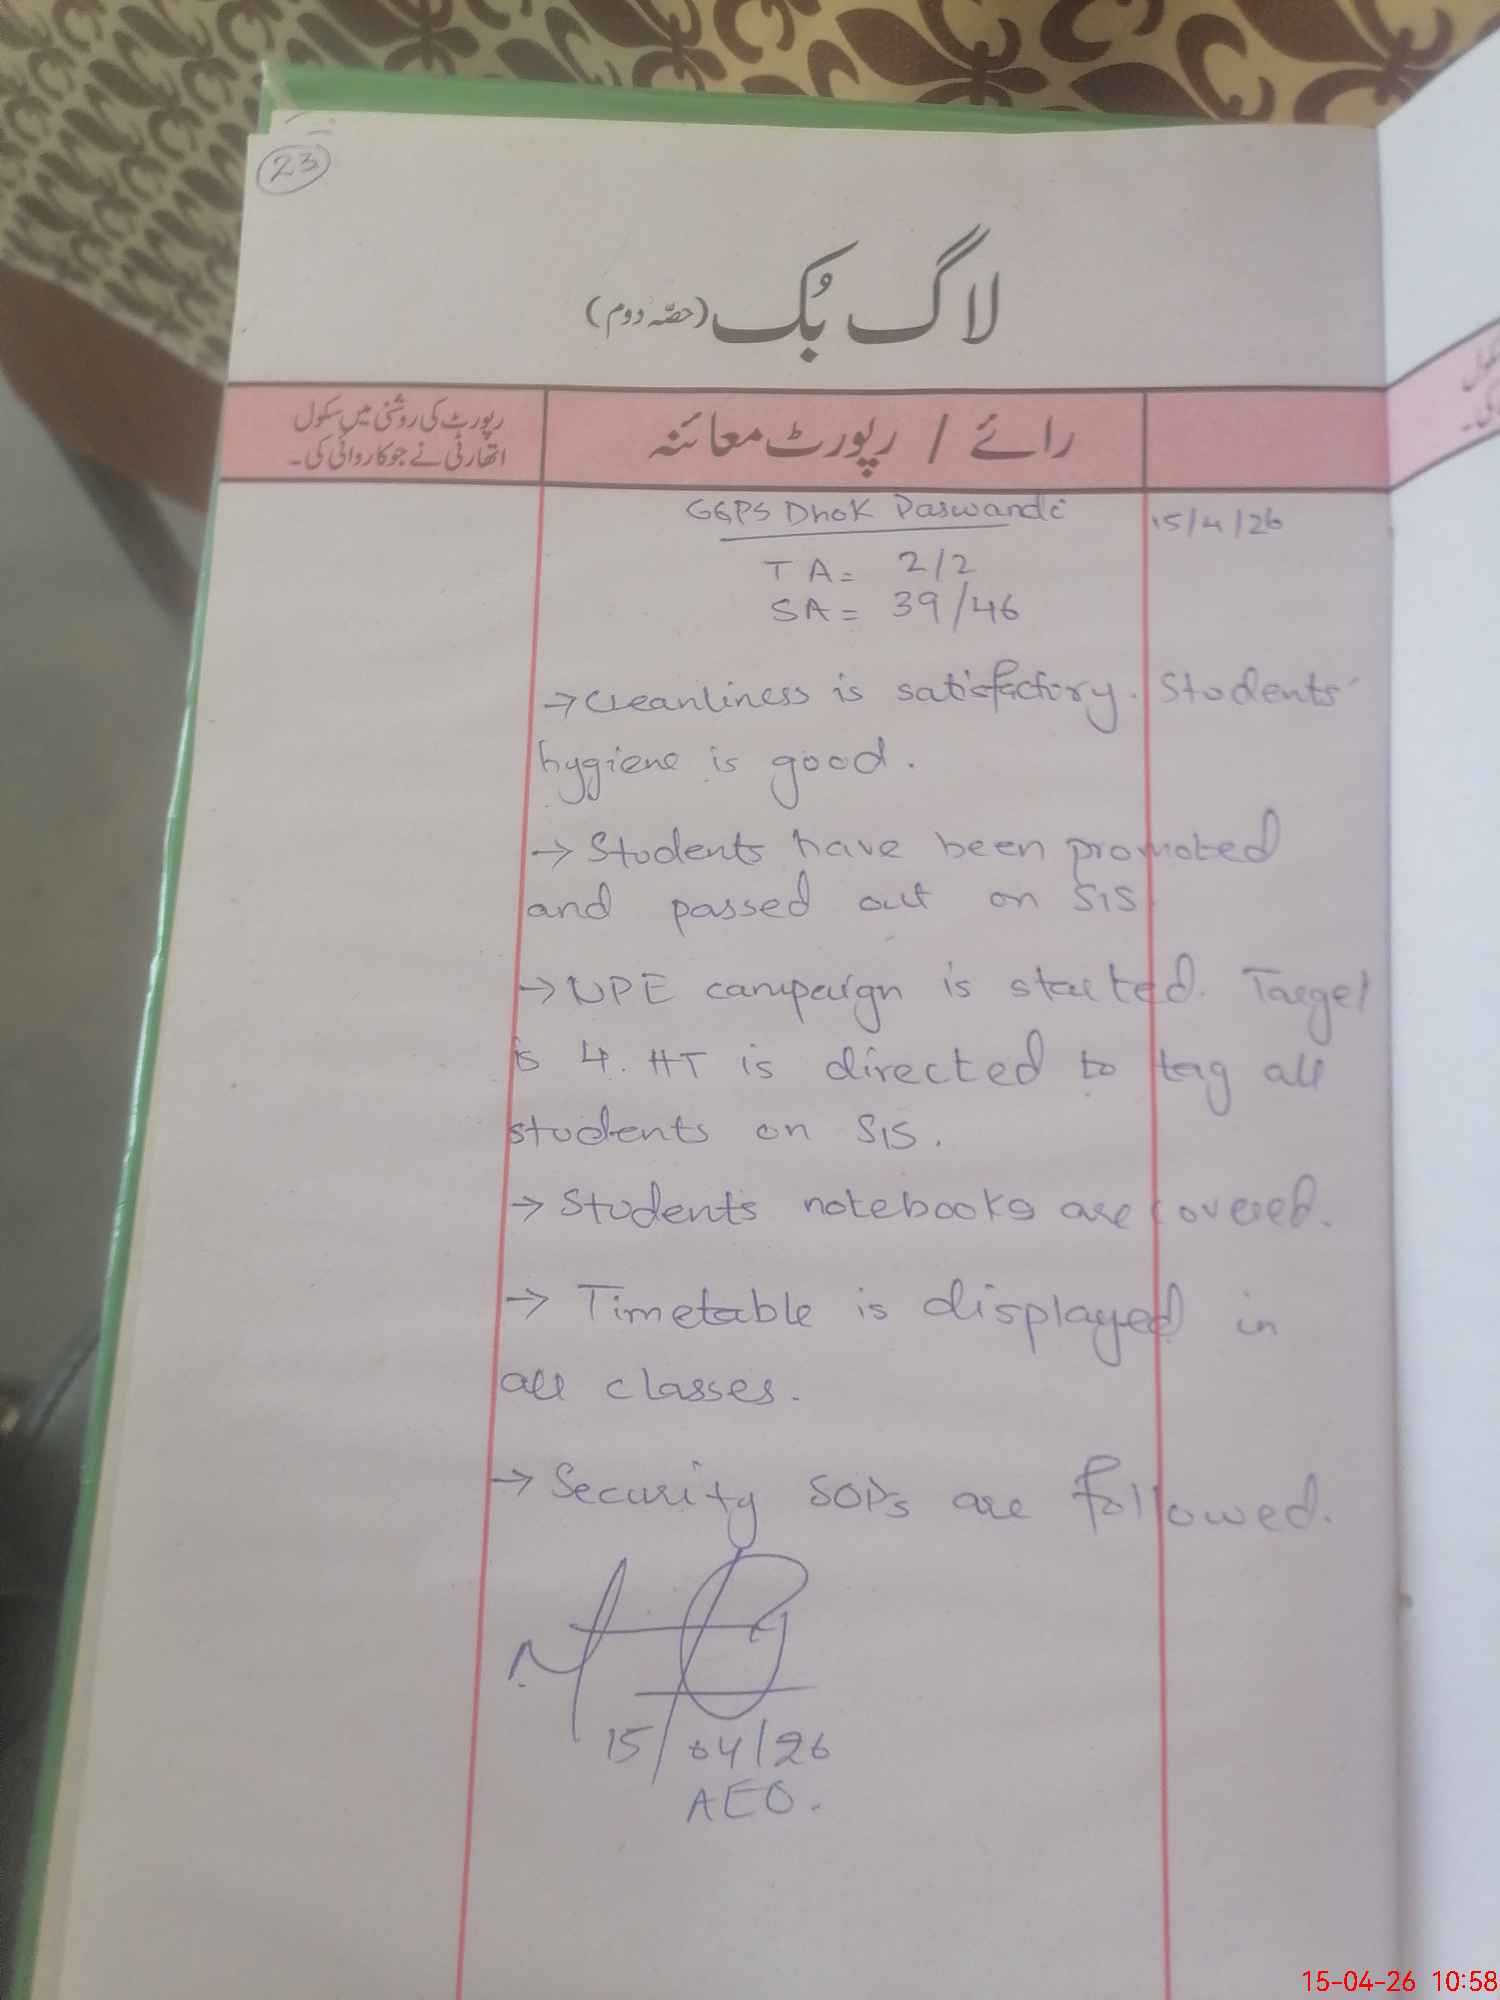 23
لاگ بُک (حصّہ دوم)
رائے / رپورٹ معائنہ
رپورٹ کی روشنی میں سکول
اتھارٹی نے جو کاروائی کی۔
GGPS Dhok Paswande
15/4/26
TA = 2/2
SA = 39/46
→ Cleanliness is satisfactory. Students'
hygiene is good.
→ Students have been promoted
and passed out on SIS
→ UPE campaign is started. Target
is 4. HT is directed to tag all
students on SIS.
→ Students notebooks are covered.
→ Timetable is displayed in
all classes.
→ Security SOPs are followed.
15/04/26
AEO.
15-04-26 10:58